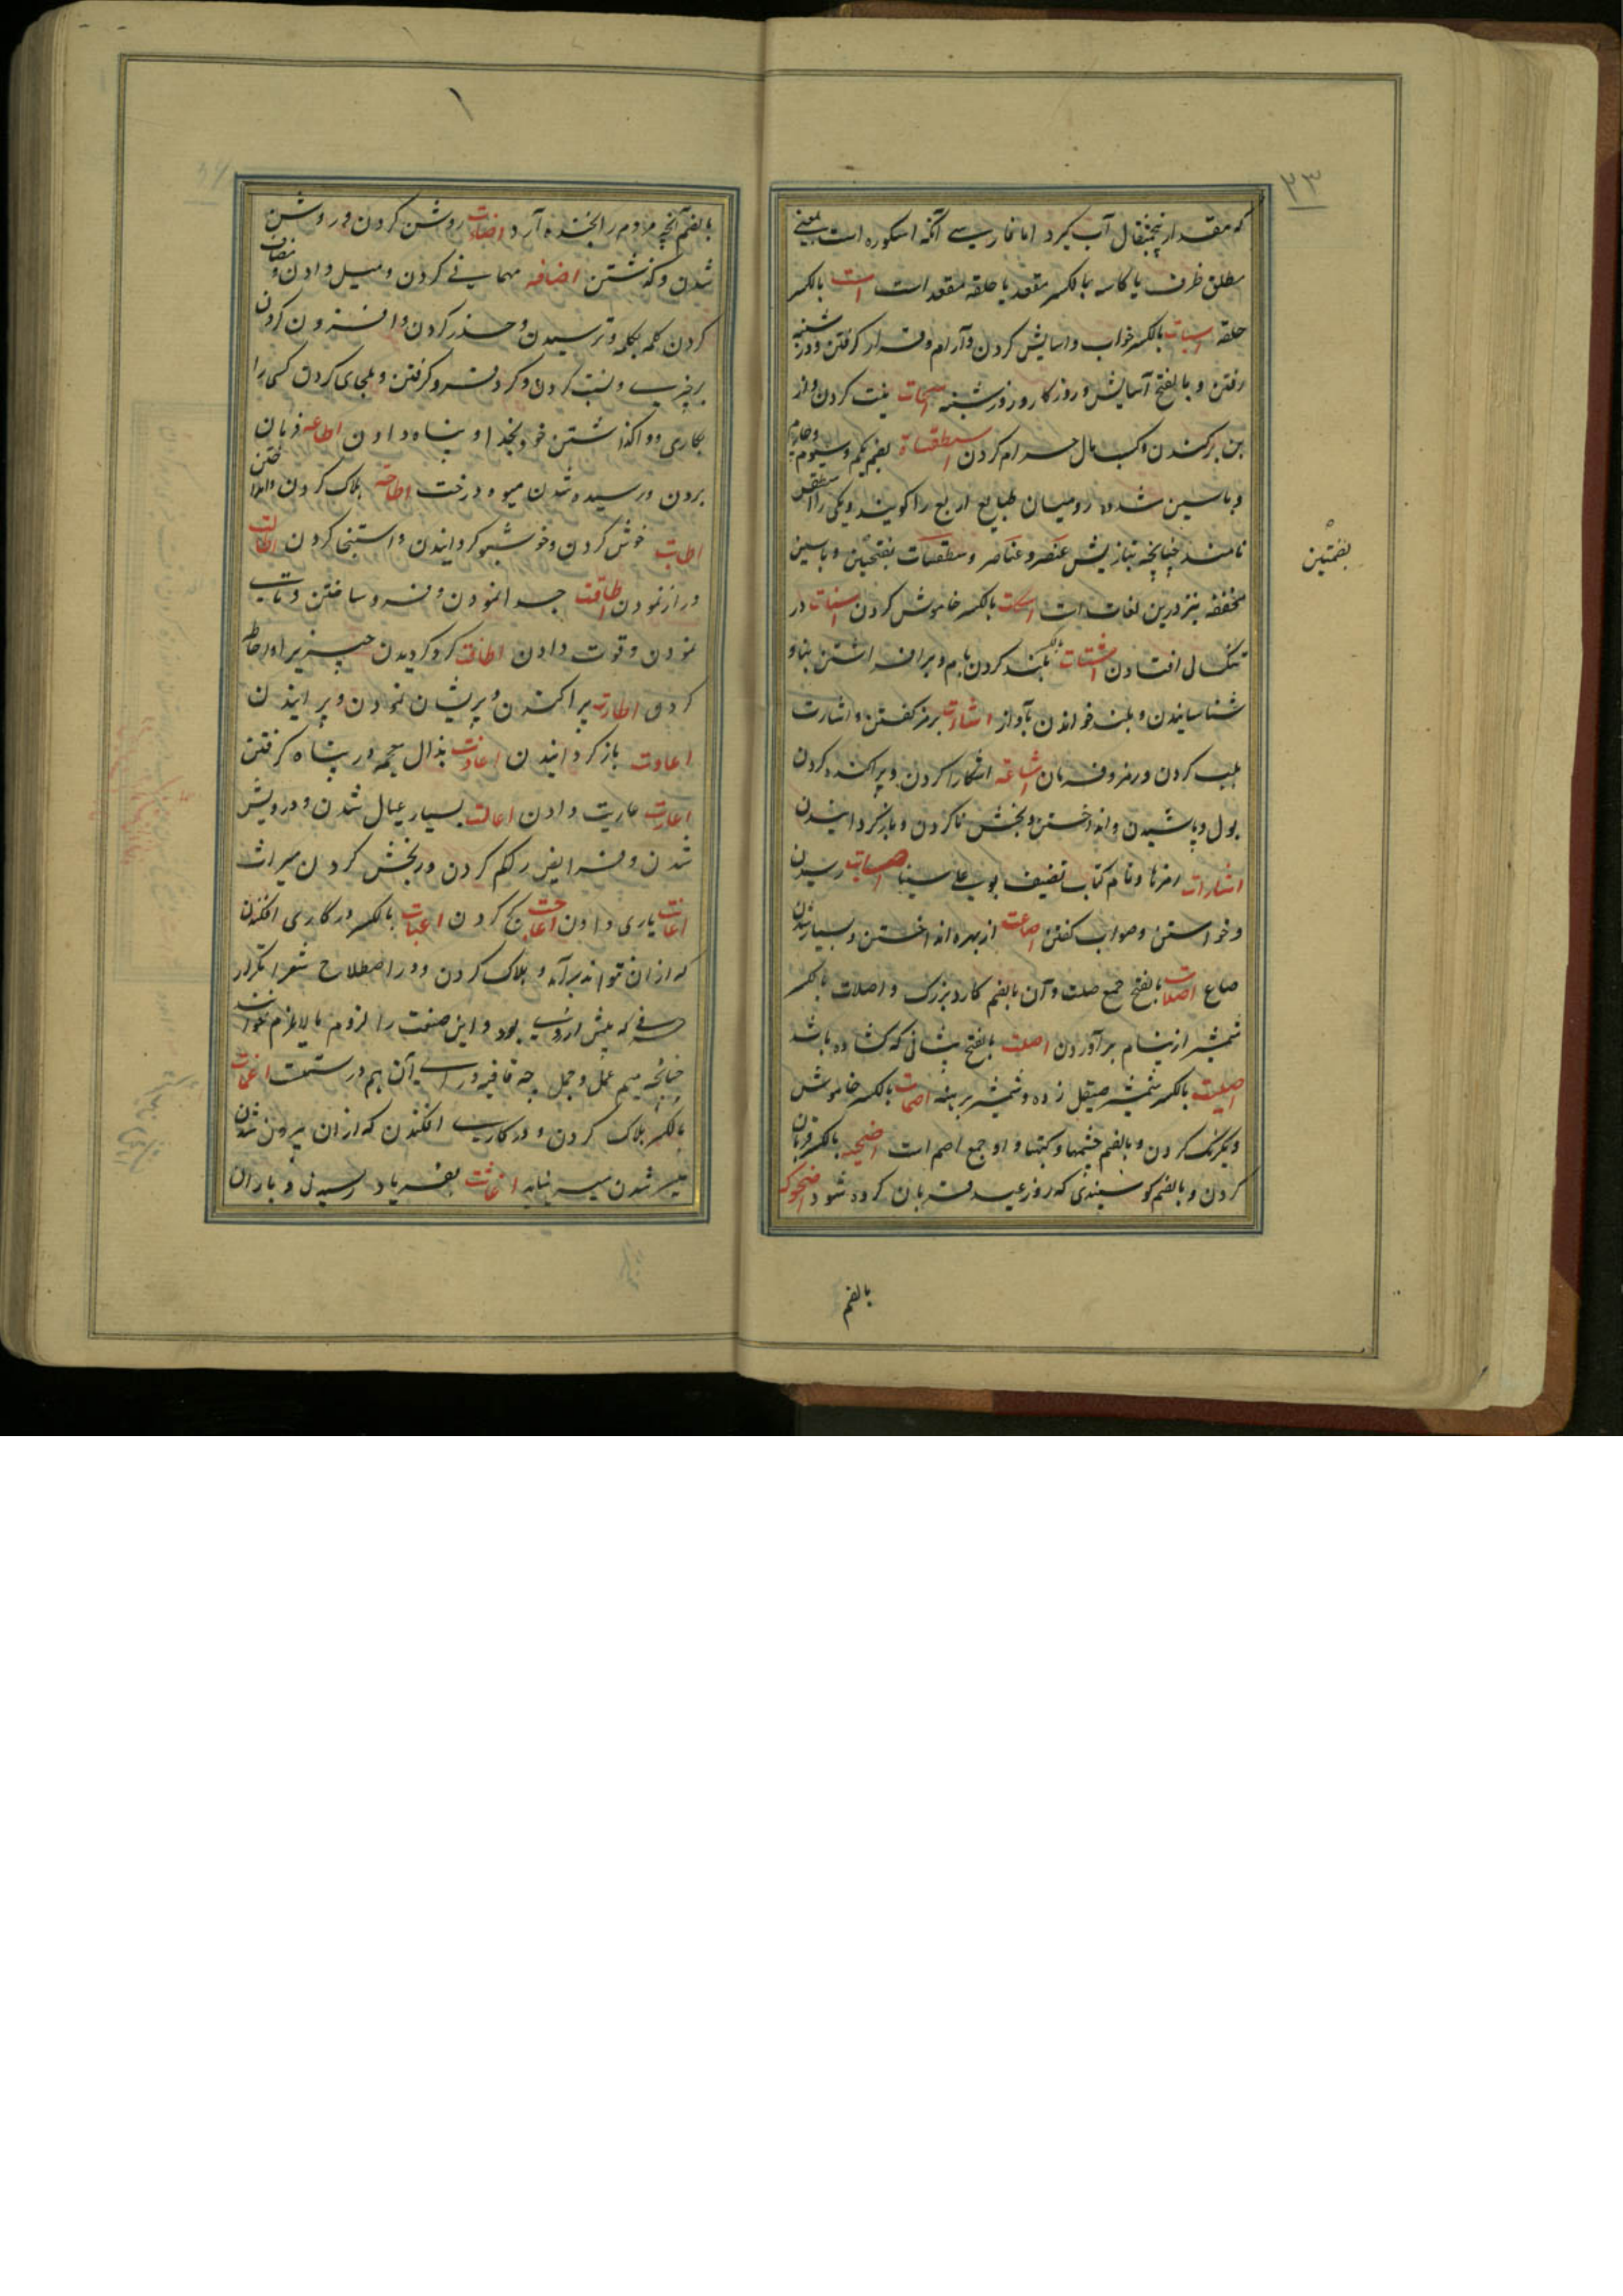 ۲۳
که مقدار پنجمثقال آب گیرد اما بفارسی آنکه اسکوره است یعنی
مطلق ظرف یا کاسه بالکسر مقعد یا حلقه مقعد است است بالکسر
حلقه اسبات بالکسر خواب و اسایش کردن و آرام و قرار گرفتن و در شنبه
رفتن و بالفتح آسایش و روزگار و روز شنبه اسحات نیت کردن و از
بن برکندن و کسب مال حرام کردن اسطقسات بضم یکم و سیوم و چهارم
و با سین مشدده رومیان طبایع اربع را گویند و یکی را اسطقس
نامند چنانچه بتازیش عنصر و عناصر و سطقسات بفتحین و با سین
بضمتین
مخففه نیز درین لغات است اسکات بالکسر خاموش کردن اسنات در
تنگسال افتادن اشتات بلند کردن بام و برافراشتن بنا و
شناسانیدن و بلند خواندن بآواز اشارت برمز گفتن و اشارت
بلب کردن و رمز و فرمان اشاعة اشکارا کردن و پراکنده کردن
بول و پاشیدن و انداختن و بخش ناکردن و باز گردانیدن
اشارات رمزها و نام کتاب تصنیف بوعلی سینا اصابت رسیدن
و خواستن و صواب گفتن اصاعت از بهره انداختن و بسیار شدن
صاع اصلات بالفتح جمع صلت و آن بالضم کارد بزرگ و اصلات بالکسر
شمشیر از نیام برآوردن اصلت بالفتح پیشانی که کشاده باشد
اصلیت بالکسر شمشیر صیقل زده و شمشیر برهنه اصمات بالکسر خاموش
و یکرنگ کردن و بالضم خشمها و کینها و او جمع اصم است اضحیه بالکسر قربان
کردن و بالضم گوسپندی که روز عید قربان کرده شود اضحوکه
بالضم
بالضم آنچه مردم را بخنده آرد اضاءت روشن کردن و روشن
شدن و گذشتن اضافه مهمانی کردن و میل دادن و مضاف
کردن کلمه بکلمه و ترسیدن و حذر کردن و افزون کردن
برچیزی و نسبت کردن و گرد فرو گرفتن و ملجای کردن کسی را
بکاری و واگذاشتن خود بخدا و پناه دادن اطاعه فرمان
بردن و رسیده شدن میوه درخت اطاحة هلاک کردن و انداختن
اطابت خوش کردن و خوشبو گردانیدن و استنجا کردن اطالت
دراز نمودن اطاقت جدا نمودن و فرو ساختن و تاب
نمودن و قوت دادن اطافت گرد گردیدن چیزیرا و احاطه
کردن اطارت پراکندن و پریشان نمودن و پرانیدن
اعادت باز گردانیدن اعاذت بذال معجمه در پناه گرفتن
اعارت عاریت دادن اعالت بسیار عیال شدن و درویش
شدن و فرایض رکم کردن و در بخش کردن میراث
اعانت یاری دادن اعاجت کج کردن اعنات بالکسر در کاری افکندن
که از ان نتواند برآمد و هلاک کردن و در اصطلاح شعرا تکرار
حرفی که پیش از روی بود و این صنعت را لزوم مالایلزم خوانند
چنانچه میم عمل و جمل چه قافیه ورای آن هم درست است اغمات
بالکسر هلاک کردن و در کاری افکندن که از ان بیرون شدن
میسر شدن میسر نیاید اغاثت بفریاد رسیدن و باران